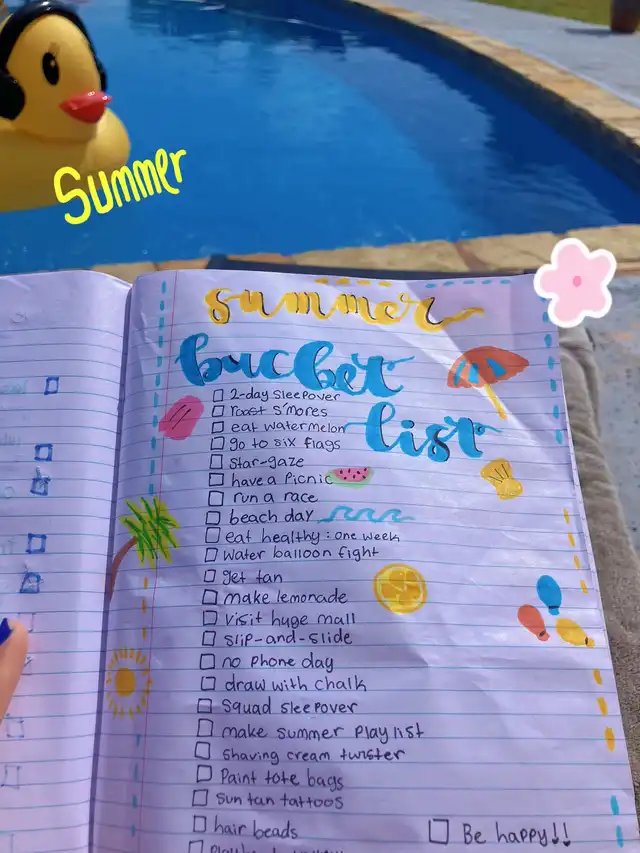 Summer
summer
bucket
list
2-day sleepover
roast s'mores
eat watermelon
go to six flags
star-gaze
have a picnic
run a race
beach day
eat healthy: one week
water balloon fight
get tan
make lemonade
visit huge mall
slip-and-slide
no phone day
draw with chalk
squad sleepover
make summer playlist
shaving cream twister
Paint tote bags
sun tan tattoos
hair beads
Be happy!!